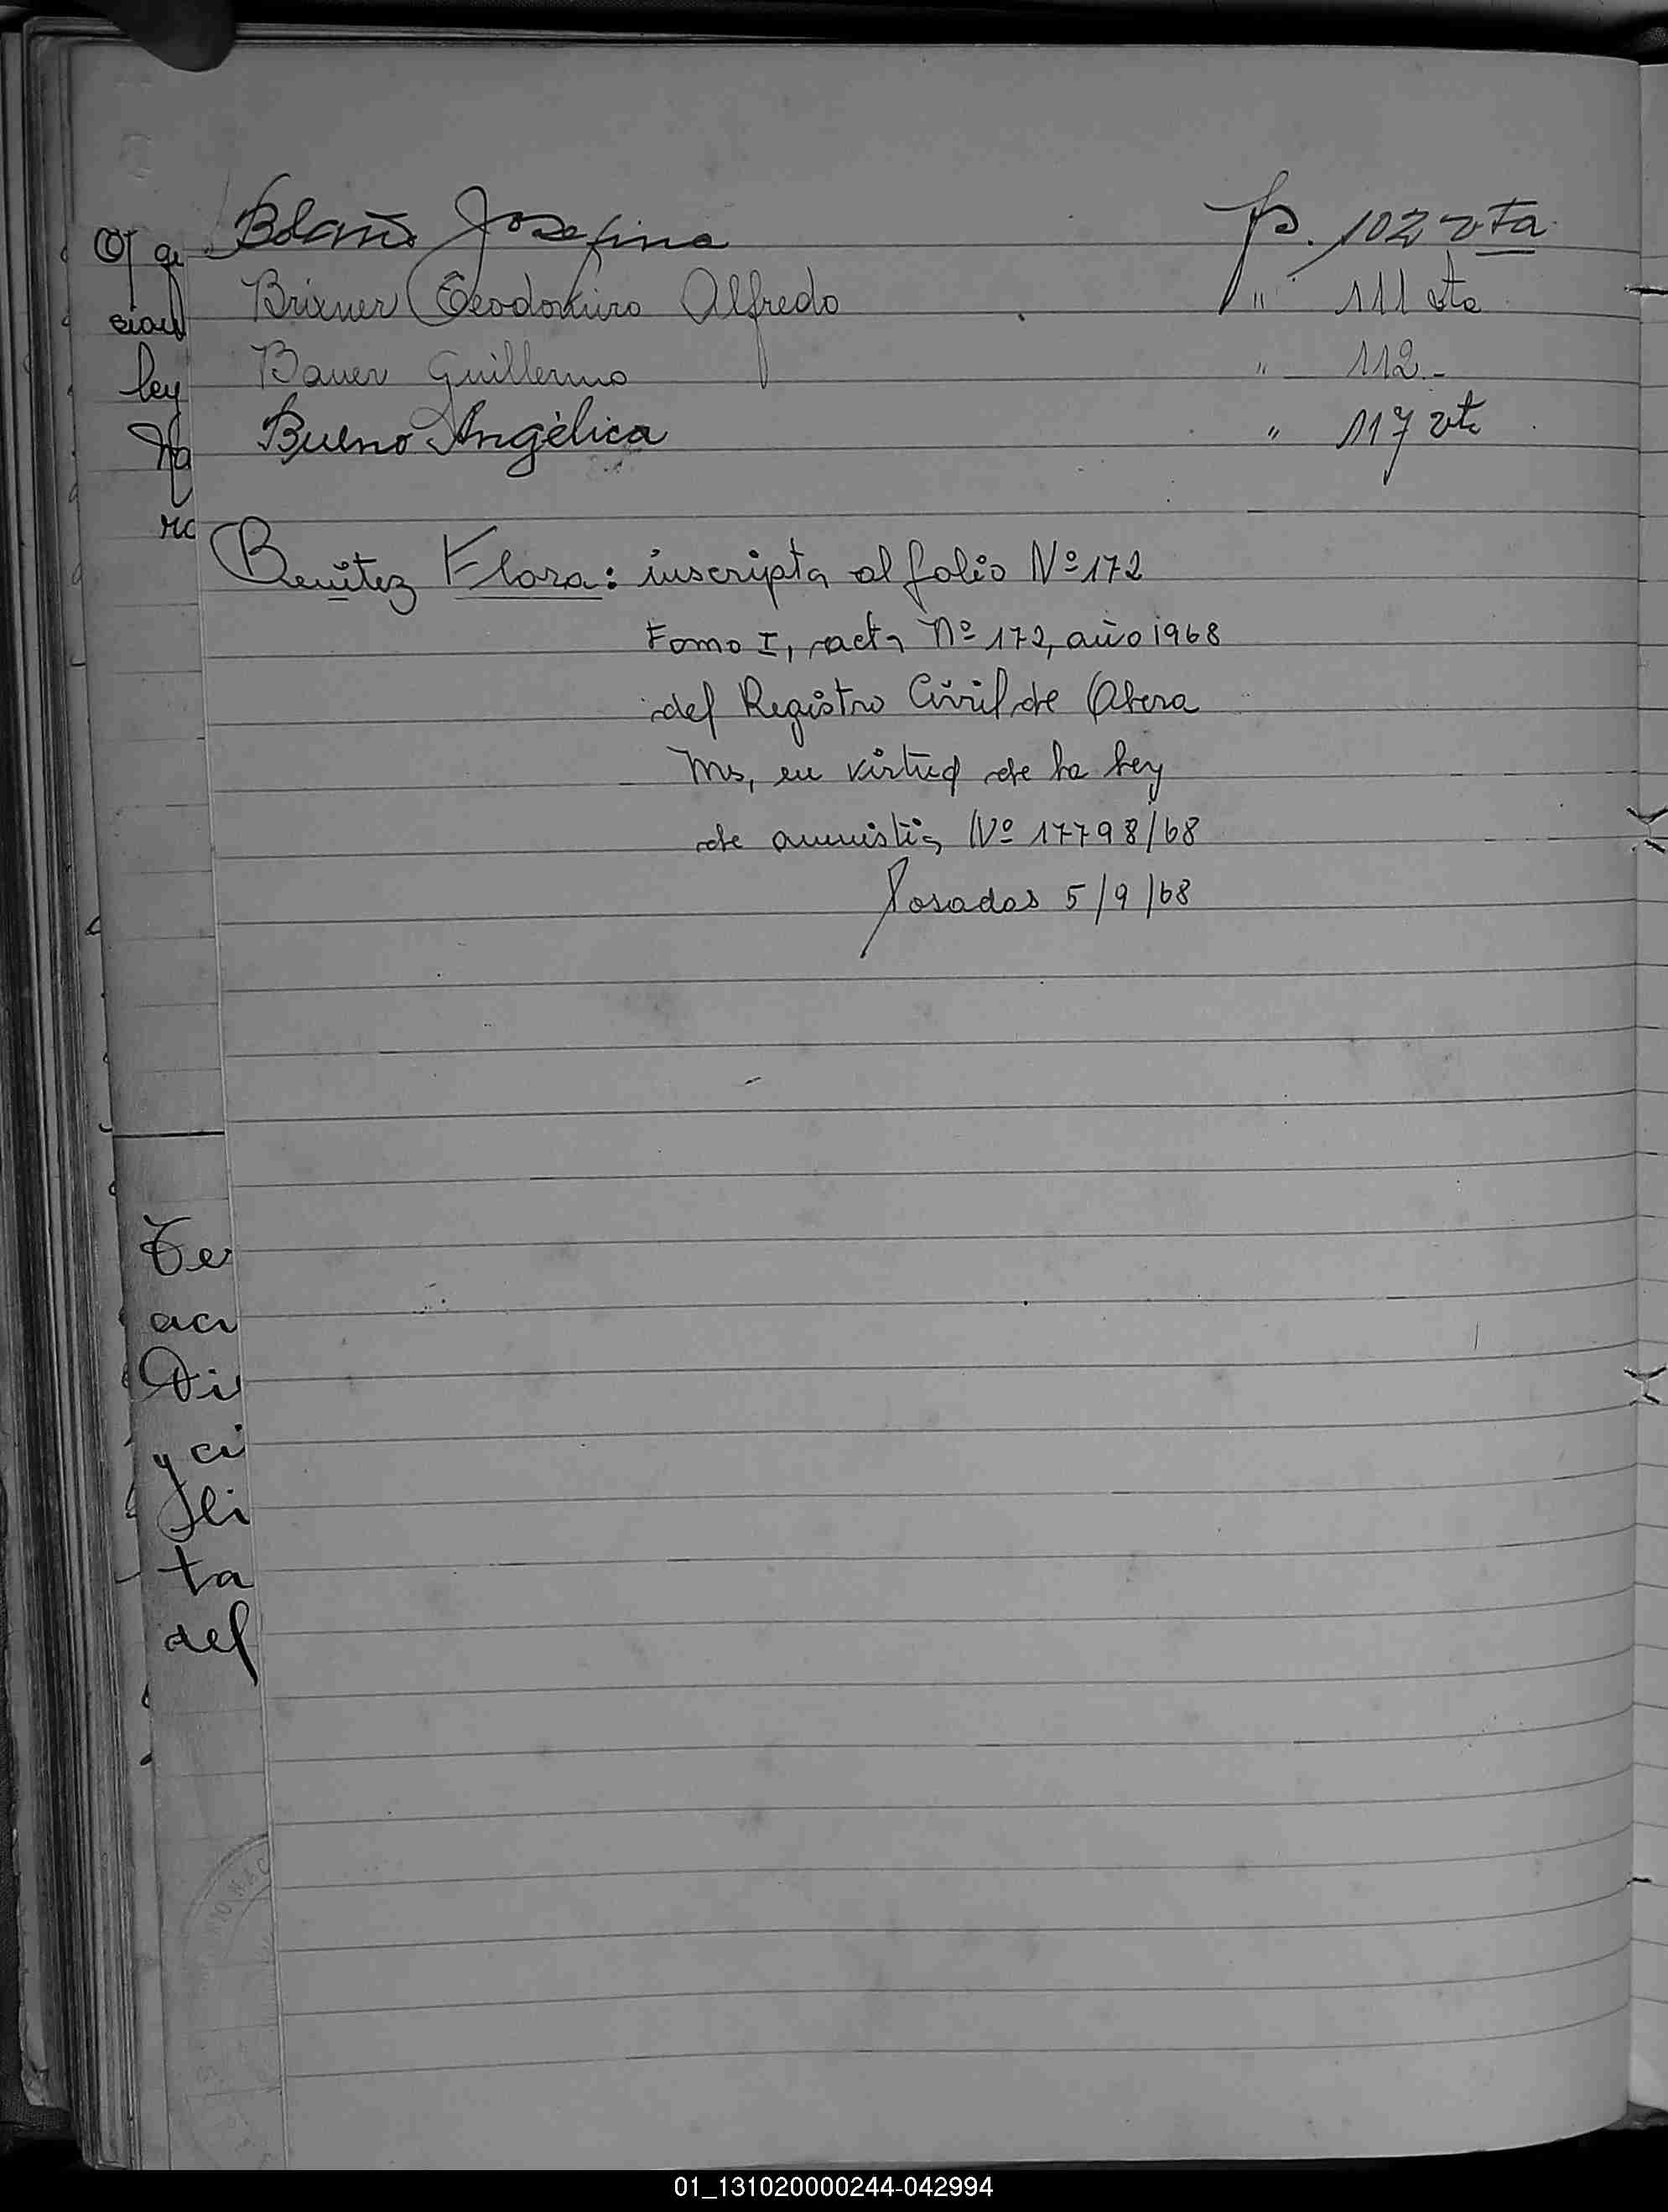 Josefina fs. 102 vta
Brixner Teodomiro Alfredo " 111 vta
Bauer Guillermo " 112.-
Bueno Angélica " 117 vta
Benitez Flora: inscripta al folio Nº 172
Tomo I, acta Nº 172, año 1968
del Registro Civil de Obera
Ms, en virtud de la ley
de amnistia Nº 17798/68
Posadas 5/9/68
ley
Te
acu
Di
y ci
ta
del
01_131020000244-042994